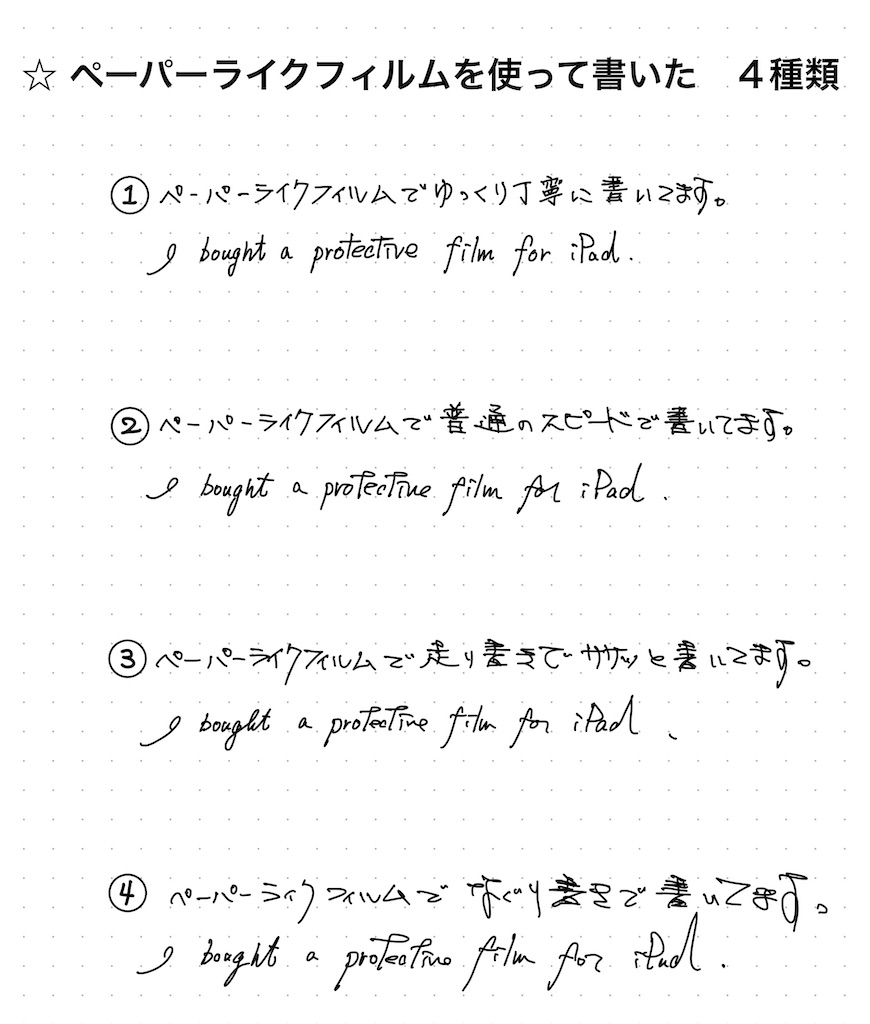 ☆ ペーパーライクフィルムを使って書いた　４種類
① ペーパーライクフィルムでゆっくり丁寧に書いてます。
I bought a protective film for iPad.
② ペーパーライクフィルムで普通のスピードで書いてます。
I bought a protective film for iPad.
③ ペーパーライクフィルムで走り書きでササッと書いてます。
I bought a protective film for iPad.
④ ペーパーライクフィルムでなぐり書きで書いてます。
I bought a protective film for iPad.